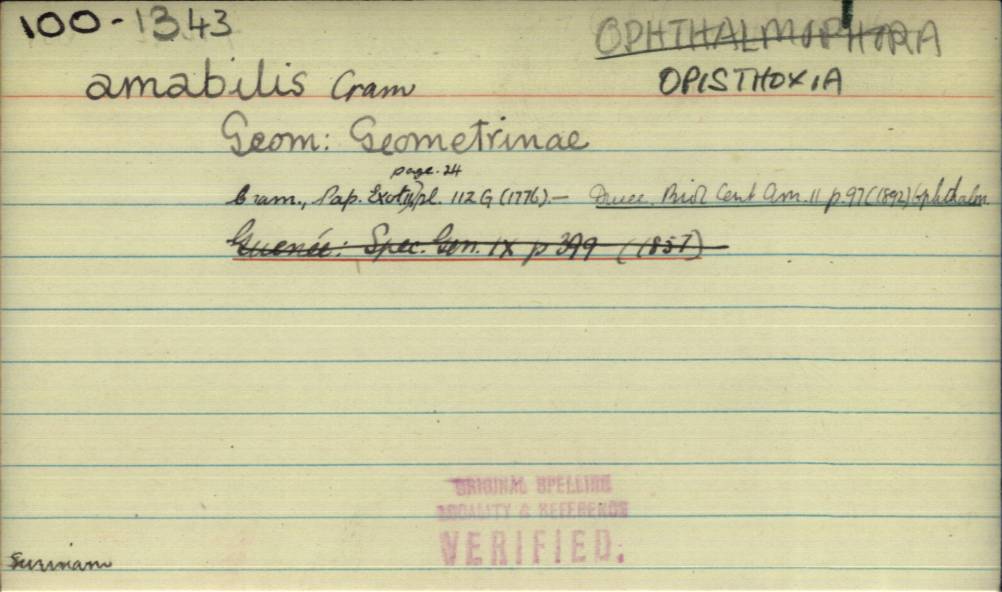 100-1343
OPHTHALMOPHORA
amabilis Cram
OPISTHOXIA
Geom: Geometrinae
page. 24
Cram., Pap. Exot. pl. 112 G (1776). — Druce. Biol Cent Am. 11 p. 97 (1892) Ophthalm.
Guenée: Spec. Gen. IX p 399 (1857)
ORIGINAL SPELLING
LOCALITY & REFERENCE
VERIFIED.
Surinam